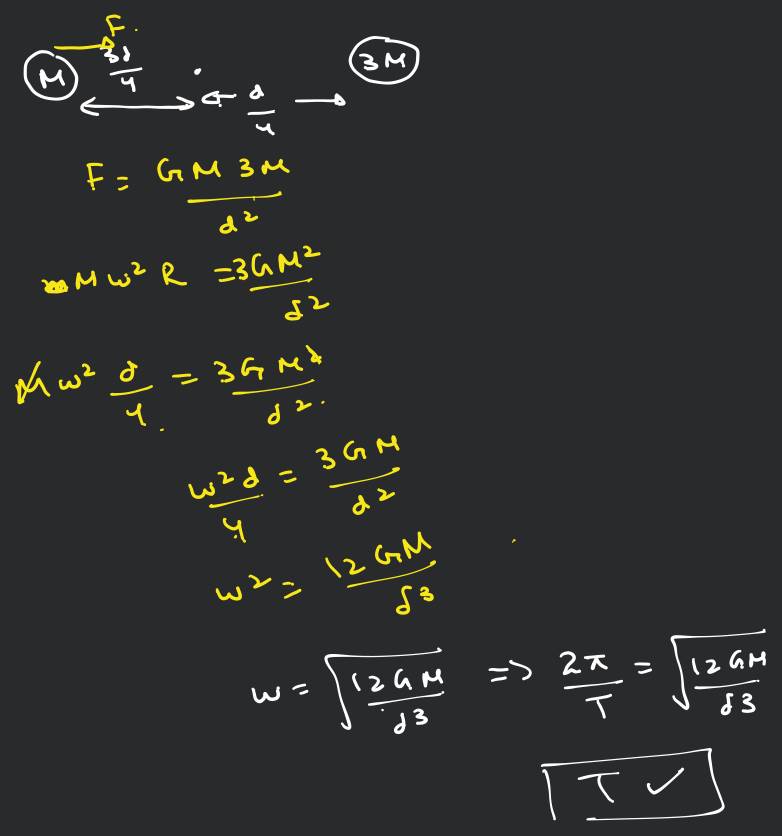 F.
M 3d/4 d/4 3M
F = GM 3M/d²
Mω²R = 3GM²/d²
Mω² d/4 = 3GM²/d².
ω²d/4 = 3GM/d²
ω² = 12GM/d3
ω = √(12GM/d3) => 2π/T = √(12GM/d3)
T ✓